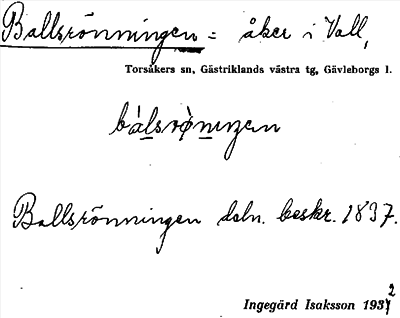 Ballsrönningen = åker i Vall,
Torsåkers sn, Gästriklands västra tg, Gävleborgs l.
bálsrǿningen
Ballsrönningen dsbn. beskr. 1837.
Ingegärd Isaksson 1932